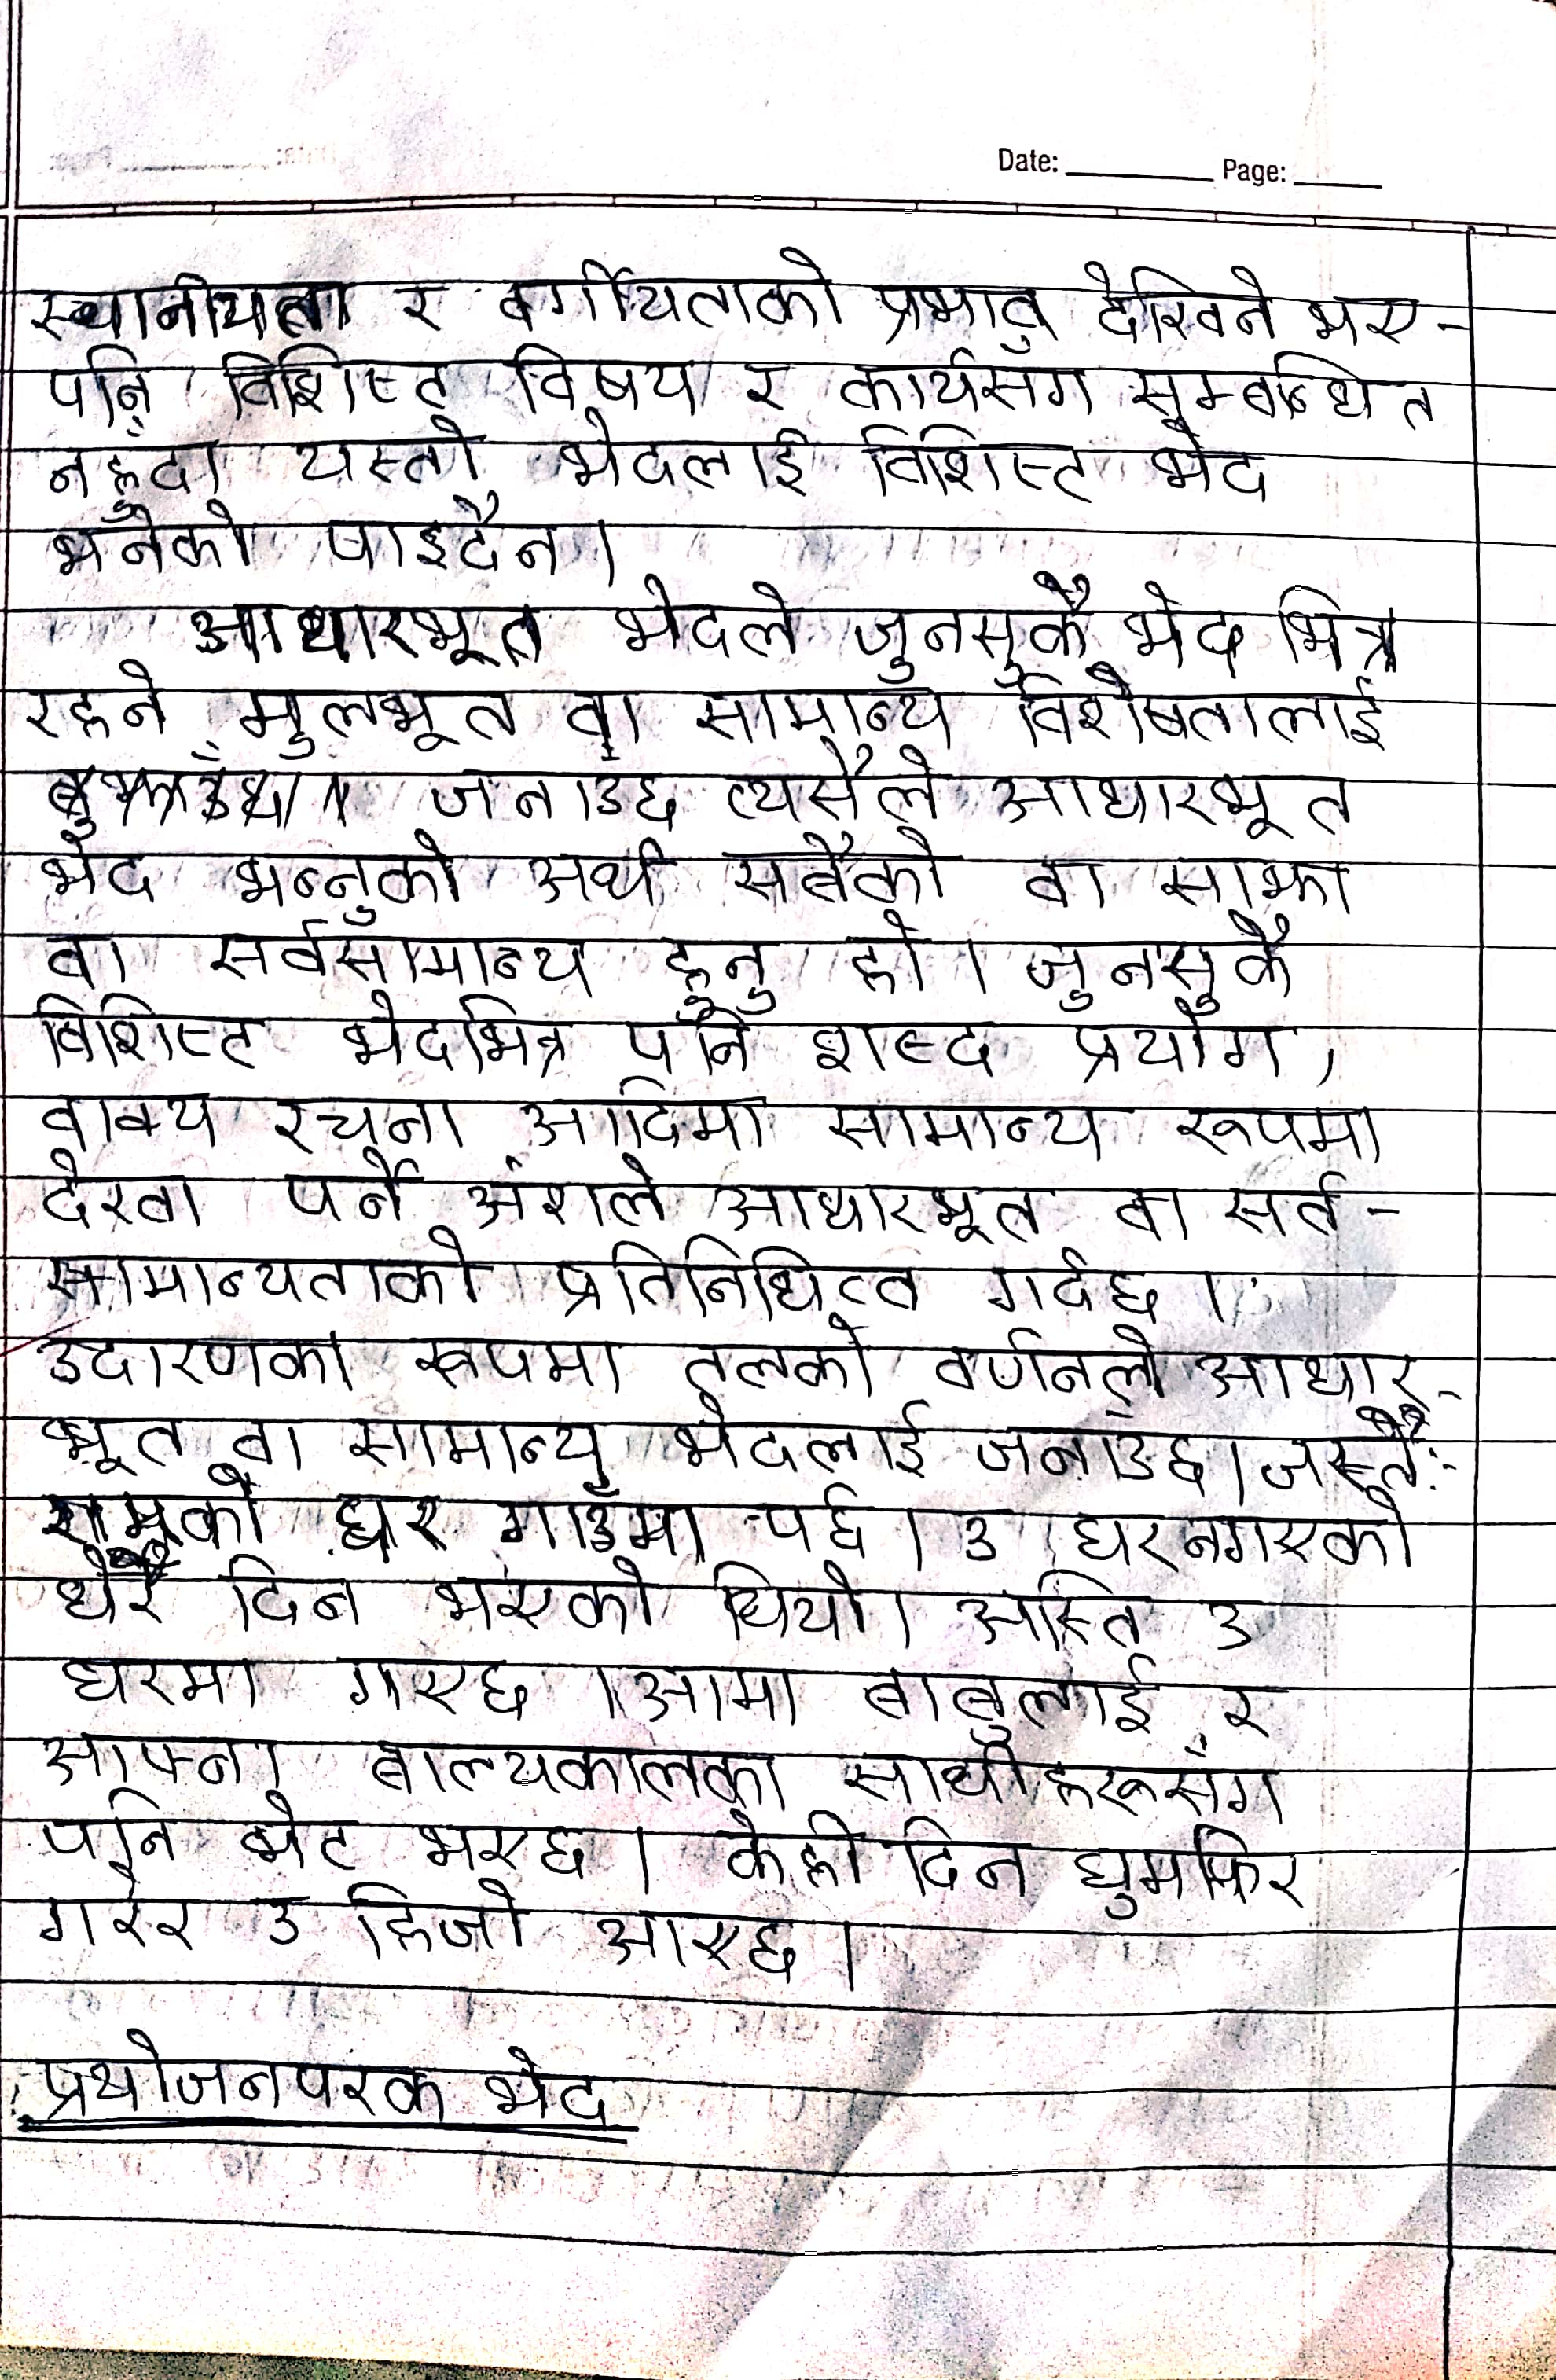 Date: ________ Page: ____
स्थानीयता र वर्गीयताको प्रभाव देखिने भए-
पनि विशिष्ट विषय र कार्यसँग सम्बन्धित
नहुँदा यस्तो भेदलाई विशिस्ट भेद
भनेको पाइदैन।
आधारभूत भेदले जुनसुकै भेद भित्र
रहने मुलभूत वा सामान्य विशेषतालाई
जनाउँछ त्यसैले आधारभूत
भेद भन्नुको अर्थ सबैको वा साझा
वा सर्वसामान्य हुनु हो। जुनसुकै
विशिष्ट भेदभित्र पनि शब्द प्रयोग,
वाक्य रचना आदिमा सामान्य रूपमा
देखा पर्ने अंशले आधारभूत वा सर्व-
सामान्यताको प्रतिनिधित्व गर्दछ।
उदारणका रूपमा तलको वर्णनले आधार-
भूत वा सामान्य भेदलाई जनाउँछ। जस्तै:-
रामको घर गाउँमा पर्छ। उ घरनगएको
धेरै दिन भएको थियो। अस्ति उ
घरमा गएछ। आमा बाबुलाई र
आफ्ना बाल्यकालका साथीहरूसँग
पनि भेट भएछ। केही दिन घुमफिर
गरेर उ हिजो आएछ।
प्रयोजनपरक भेद